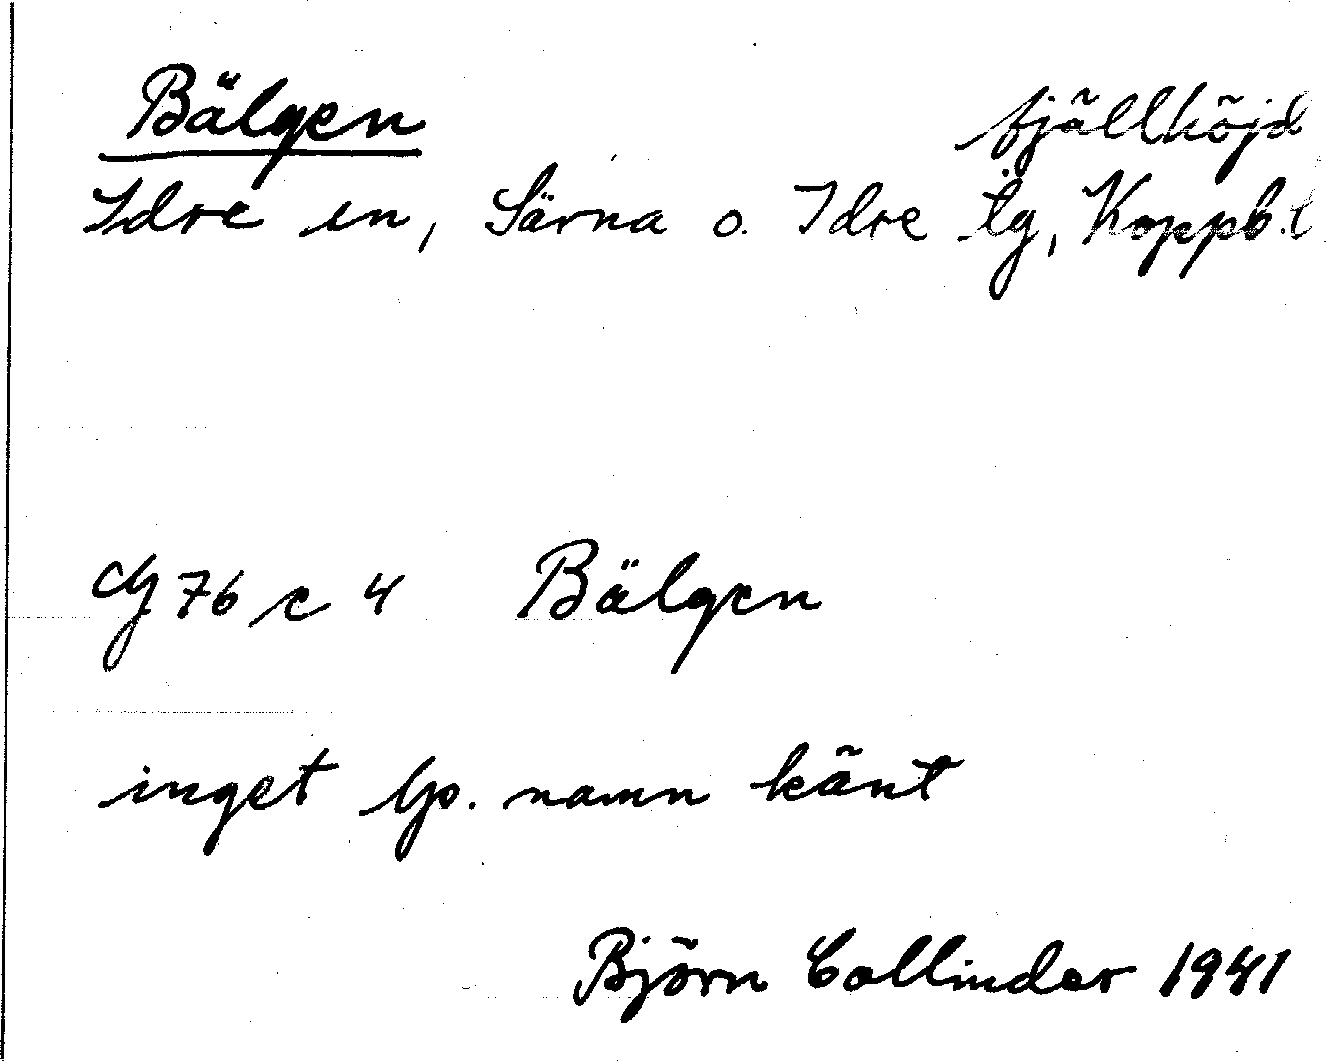 Bälgen fjällhöjd
Idre sn, Särna o. Idre tg, Koppb. l
76 c 4 Bälgen
inget lp. namn känt
Björn Collinder 1941